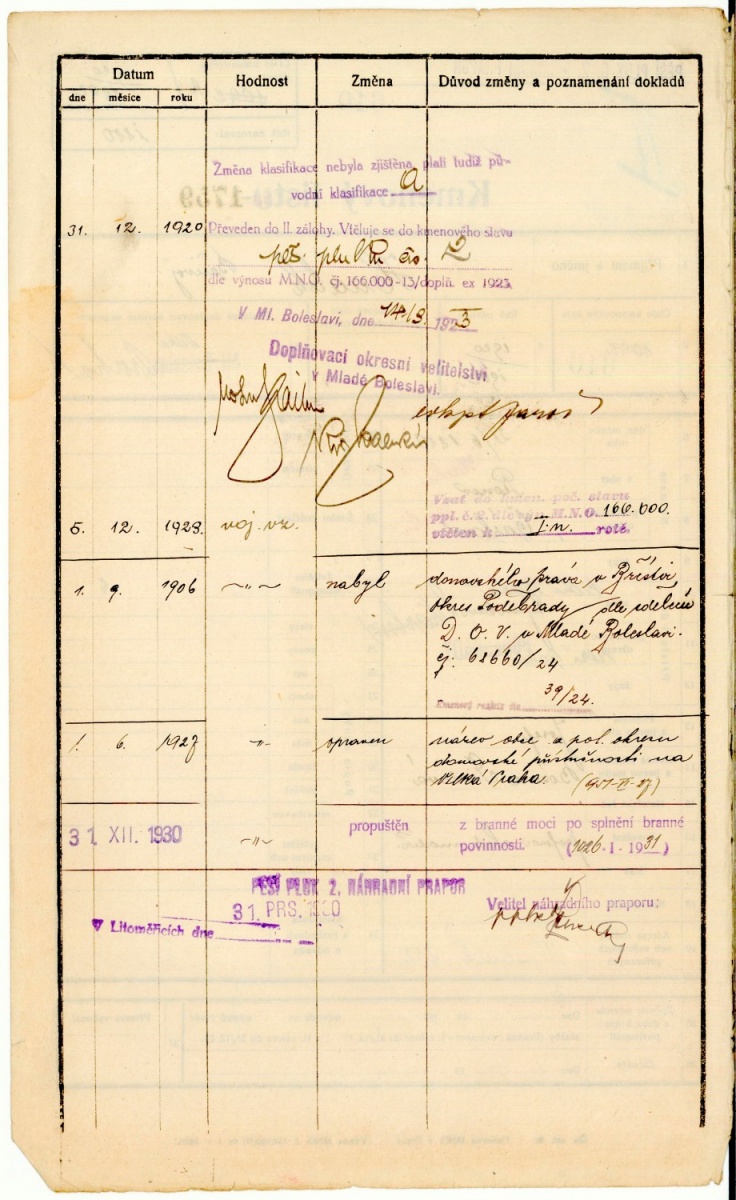 Datum Hodnost Změna Důvod změny a poznamenání dokladů
dne měsíce roku
Změna klasifikace nebyla zjištěna, platí tudíž pů-
vodní klasifikace a
31. 12. 1920 Převeden do II. zálohy. Vtěluje se do kmenového stavu
pěš. pluku čís. 2
dle výnosu M.N.O. čj. 166.000-13/doplň. ex 1923.
V Ml. Boleslavi, dne 1923
Doplňovací okresní velitelství
v Mladé Boleslavi.
Vzat do poč. stavu
ppl. č. 2 M.N.O. 166.000.
5. 12. 1923. voj. vz. vtělen k I. n. rotě.
1. 9. 1906 —„— nabyl domovského práva v Břístvi,
okres Poděbrady / dle sdělení
D. O. V. v Mladé Boleslavi.
čj. 62660/24
Kmenový 39/24.
1. 6. 1927 —„— upraven název obce a pol. okresu
domovské příslušnosti na
Velká Praha.
31. XII. 1930 —„— propuštěn z branné moci po splnění branné
povinnosti. (1026-I-1931)
PĚŠÍ PLUK 2. NÁHRADNÍ PRAPOR
31. PRS. 1930 Velitel náhradního praporu:
V Litoměřicích dne